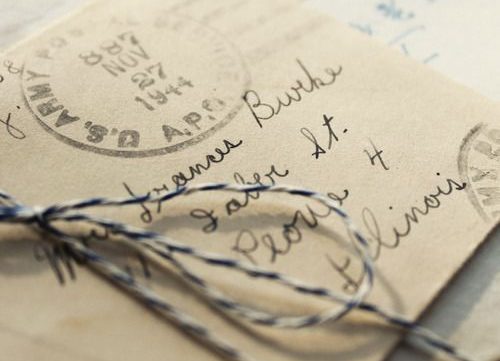 U.S. ARMY A.P.O.
887
NOV
27
1944
Mrs Frances Burke
Faber St.
Peoria 4
Illinois